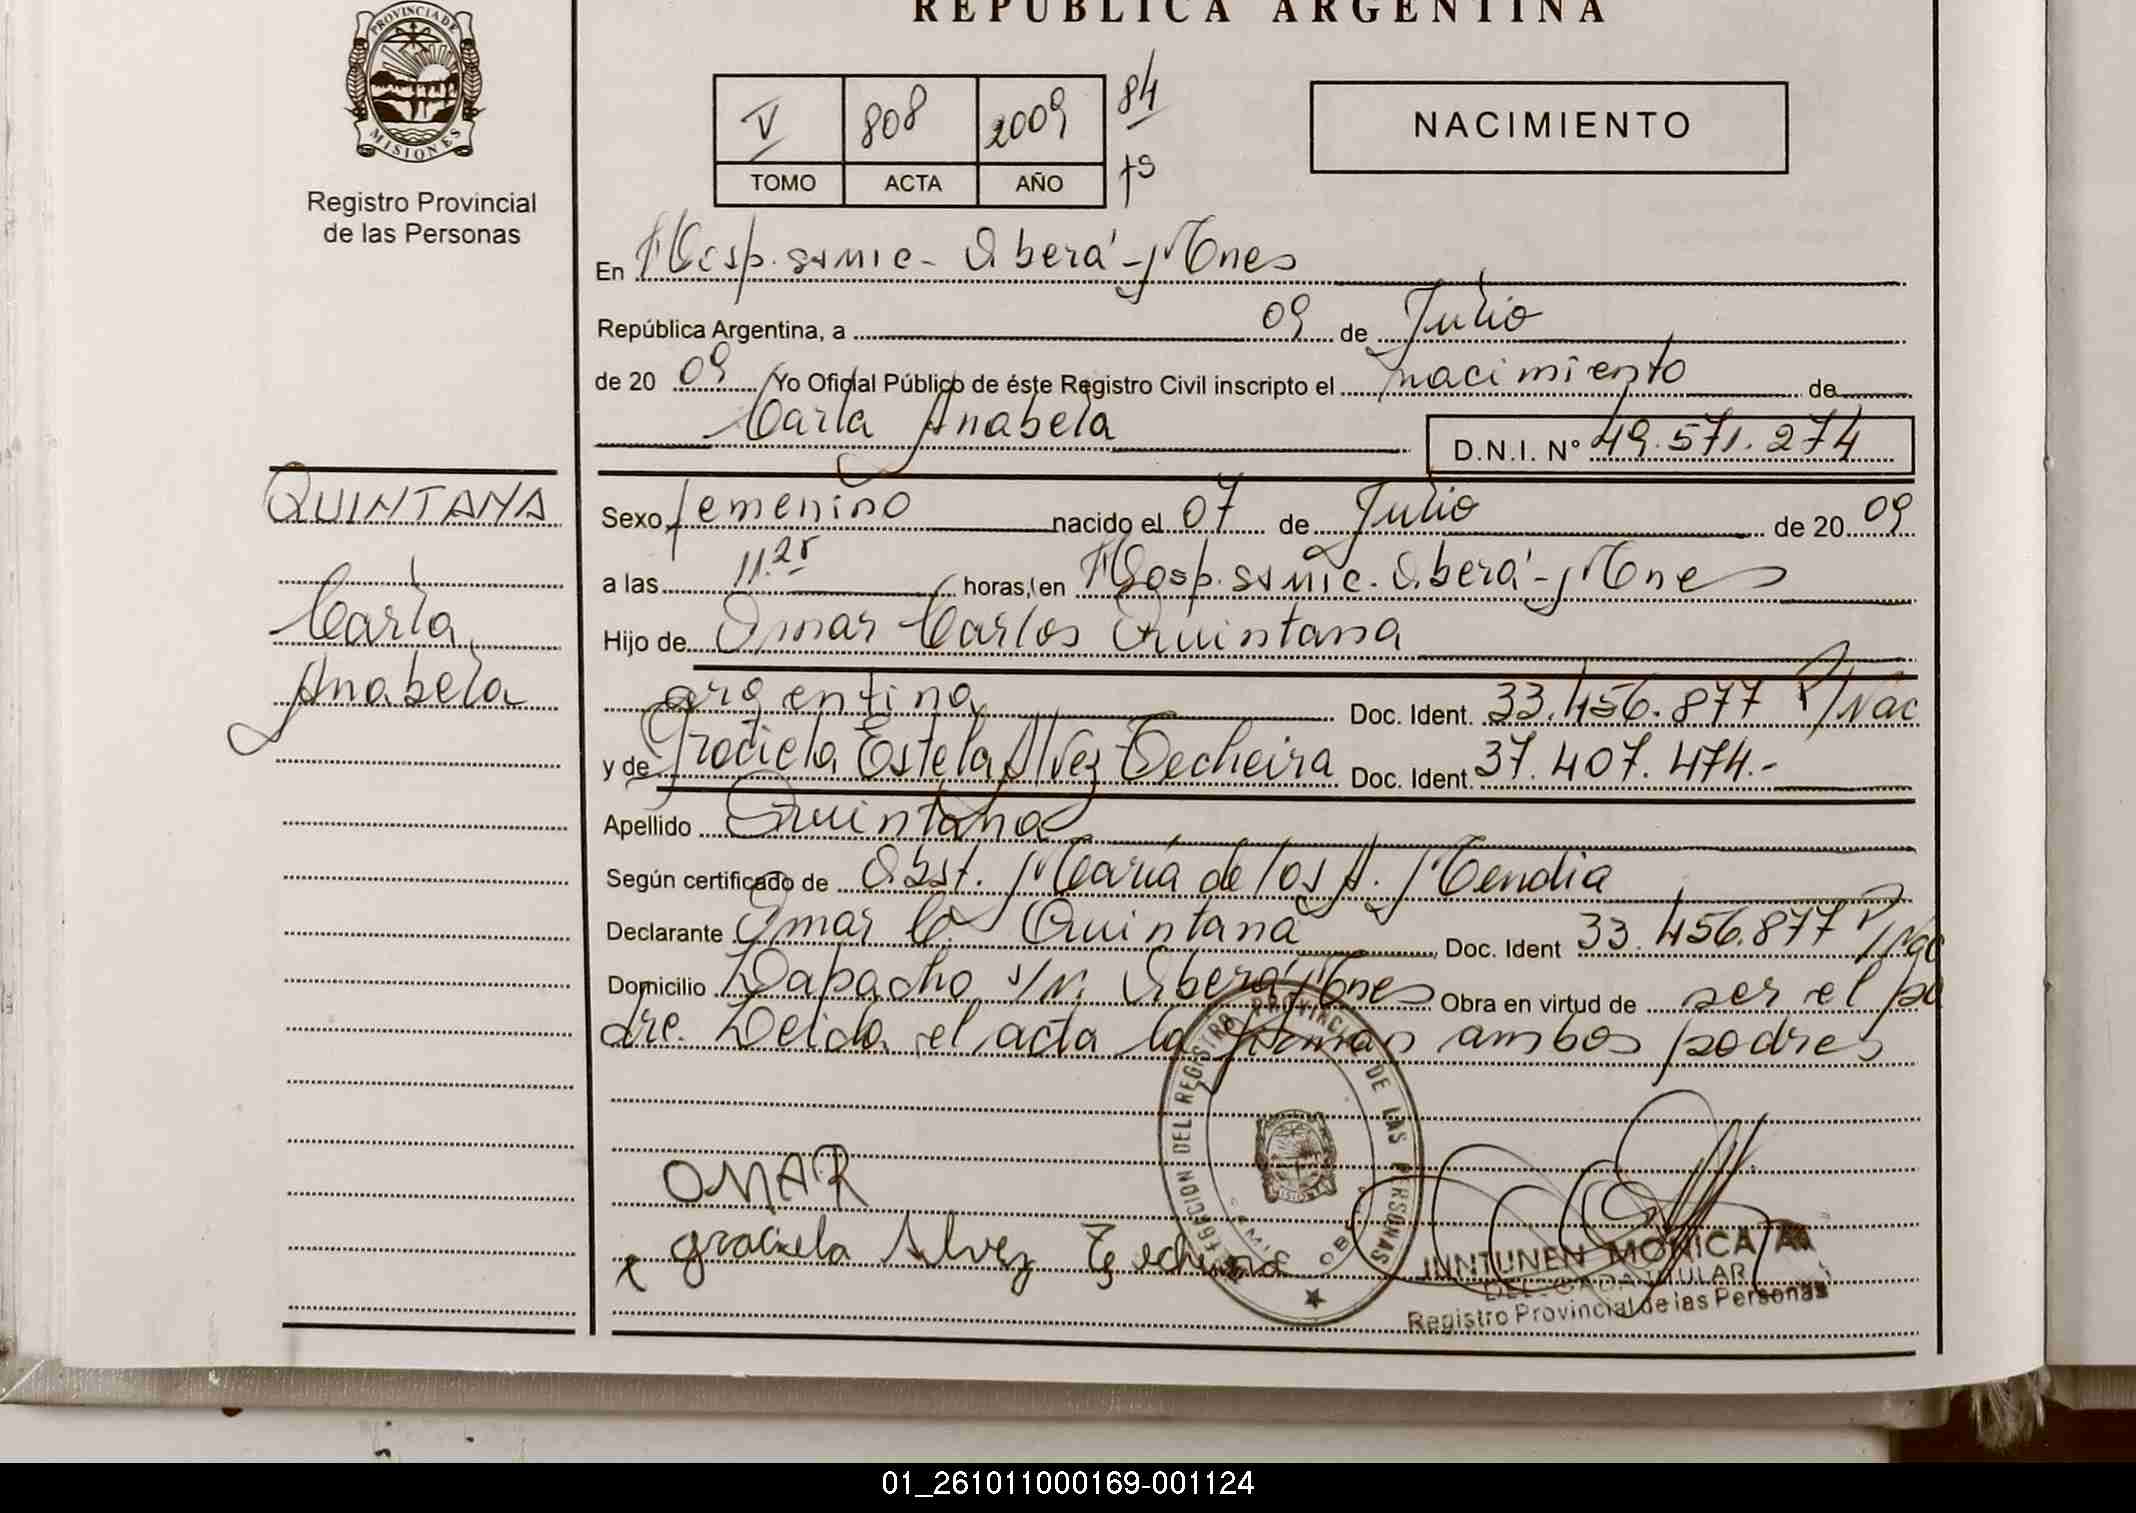 REPUBLICA ARGENTINA
PROVINCIA DE
MISIONES
Registro Provincial
de las Personas
V 808 2009 84
TOMO ACTA AÑO
NACIMIENTO
En Hosp. SAMIC - Oberá - Mnes
República Argentina, a 09 de Julio
de 2009 Yo Oficial Público de éste Registro Civil inscripto el nacimiento de
Carla Anabela D.N.I. Nº 49.571.274
QUINTANA
Carla
Anabela
Sexo femenino nacido el 07 de Julio de 2009
a las 11.25 horas, en Hosp. SAMIC - Oberá - Mnes
Hijo de Omar Carlos Quintana
argentino Doc. Ident. 33.456.877 P/Nac
y de Graciela Estela Alvez Techeira Doc. Ident 37.407.474.-
Apellido Quintana
Según certificado de Obst. María de los A. Mendia
Declarante Omar C. Quintana Doc. Ident 33.456.877 P/Nac
Domicilio Lapacho s/n. Oberá Mnes Obra en virtud de ser el pa
dre. Leida el acta la firman ambos padres
OMAR
x graciela Alvez Techeira
DELEGACION DEL REGISTRO PROVINCIAL DE LAS PERSONAS
INNTUNEN MONICA A.
DELEGADA TITULAR
Registro Provincial de las Personas
01_261011000169-001124